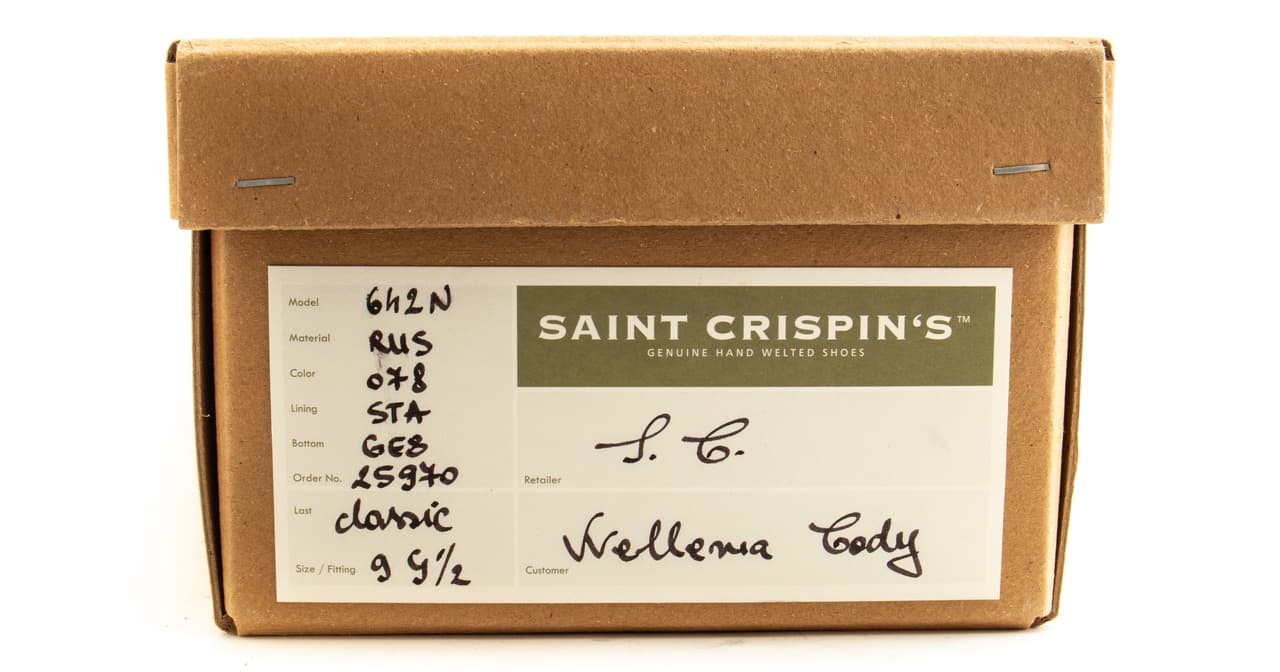 Model 642N
Material RUS
Color 078
Lining STA
Bottom GE8
Order No. 25970
Last classic
Size / Fitting 9 G½
SAINT CRISPIN‘S™
GENUINE HAND WELTED SHOES
S. C.
Retailer
Wellema Cody
Customer